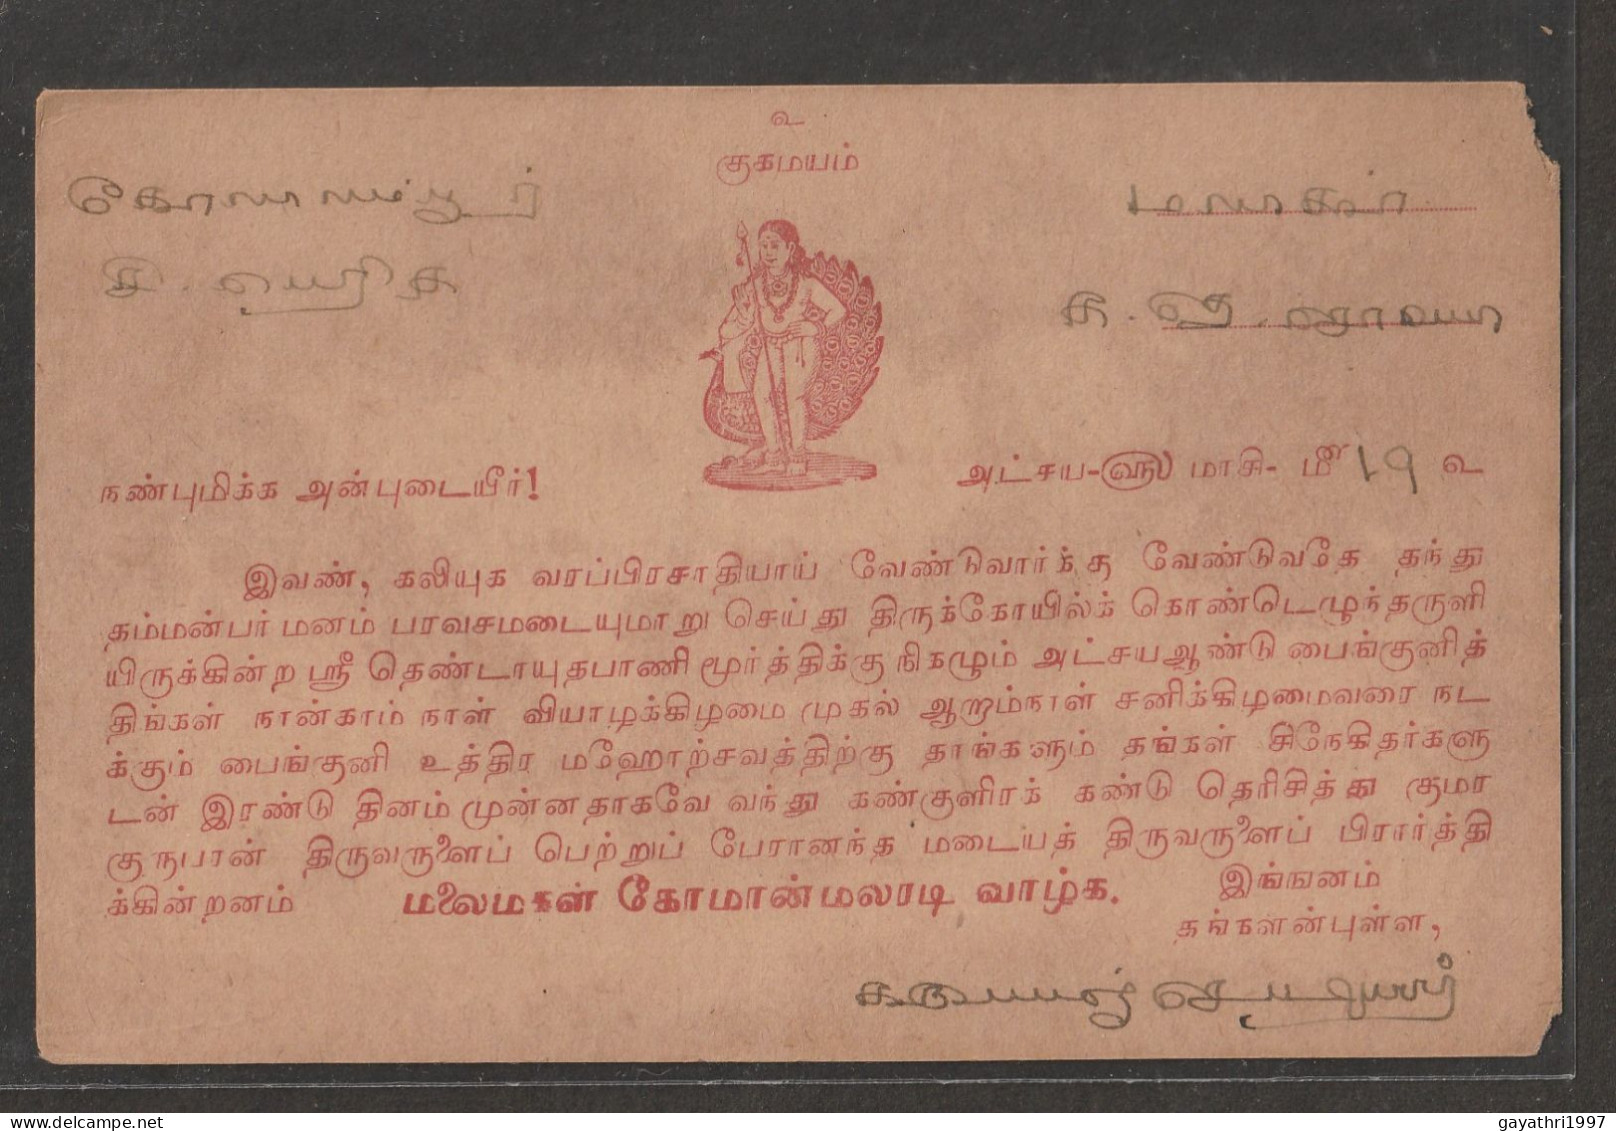 உ
குகமயம்
கோலாலம்பூர்
மலாகூர்
அட்சய-௵ மாசி- ௴ 19 உ
நண்புமிக்க அன்புடையீர்!
இவண், கலியுக வரப்பிரசாதியாய் வேண்டுவார்க்கு வேண்டுவதே தந்து
தம்மன்பர் மனம் பரவசமடையுமாறு செய்து திருக்கோயில்க் கொண்டெழுந்தருளி
யிருக்கின்ற ஸ்ரீ தெண்டாயுதபாணி மூர்த்திக்கு நிகழும் அட்சய ஆண்டு பைங்குனித்
திங்கள் நான்காம் நாள் வியாழக்கிழமை முதல் ஆறாம்நாள் சனிக்கிழமைவரை நட
க்கும் பைங்குனி உத்திர மஹோற்சவத்திற்கு தாங்களும் தங்கள் சிநேகிதர்களு
டன் இரண்டு தினம் முன்னதாகவே வந்து கண்குளிரக் கண்டு தெரிசித்து குமர
குருபரன் திருவருளைப் பெற்றுப் பேரானந்த மடையத் திருவருளைப் பிரார்த்தி
க்கின்றனம்
மலைமகள் கோமான்மலரடி வாழ்க.
இங்ஙனம்
தங்களன்புள்ள,
gayathri1997